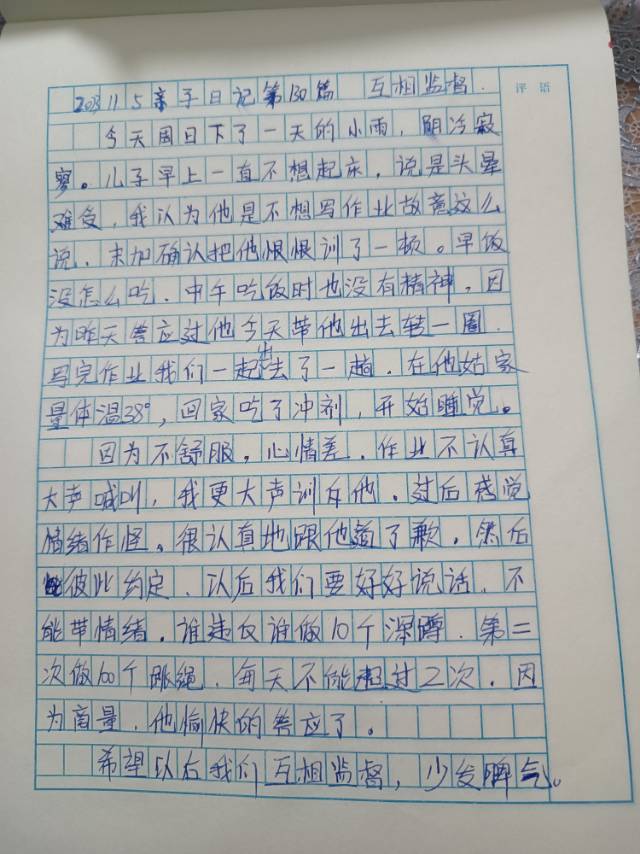 评语
2023 11 5 亲子日记第130篇 互相监督.
今天周日下了一天的小雨，阴冷寂
寥。儿子早上一直不想起床，说是头晕
难受，我认为他是不想写作业故意这么
说，未加确认把他狠狠训了一顿。早饭
没怎么吃．中午吃饭时也没有精神，因
为昨天答应过他今天带他出去转一圈．
写完作业我们一起出去了一趟．在他姑家
量体温38°，回家吃了冲剂，开始睡觉。
因为不舒服，心情差．作业不认真
大声喊叫，我更大声训斥他．过后感觉
情绪作怪，很认真地跟他道了歉．然后
彼此约定、以后我们要好好说话、不
能带情绪．谁违反谁做10个深蹲．第二
次做100个跳绳．每天不能超过2次．因
为商量．他愉快的答应了。
希望以后我们互相监督，少发脾气。